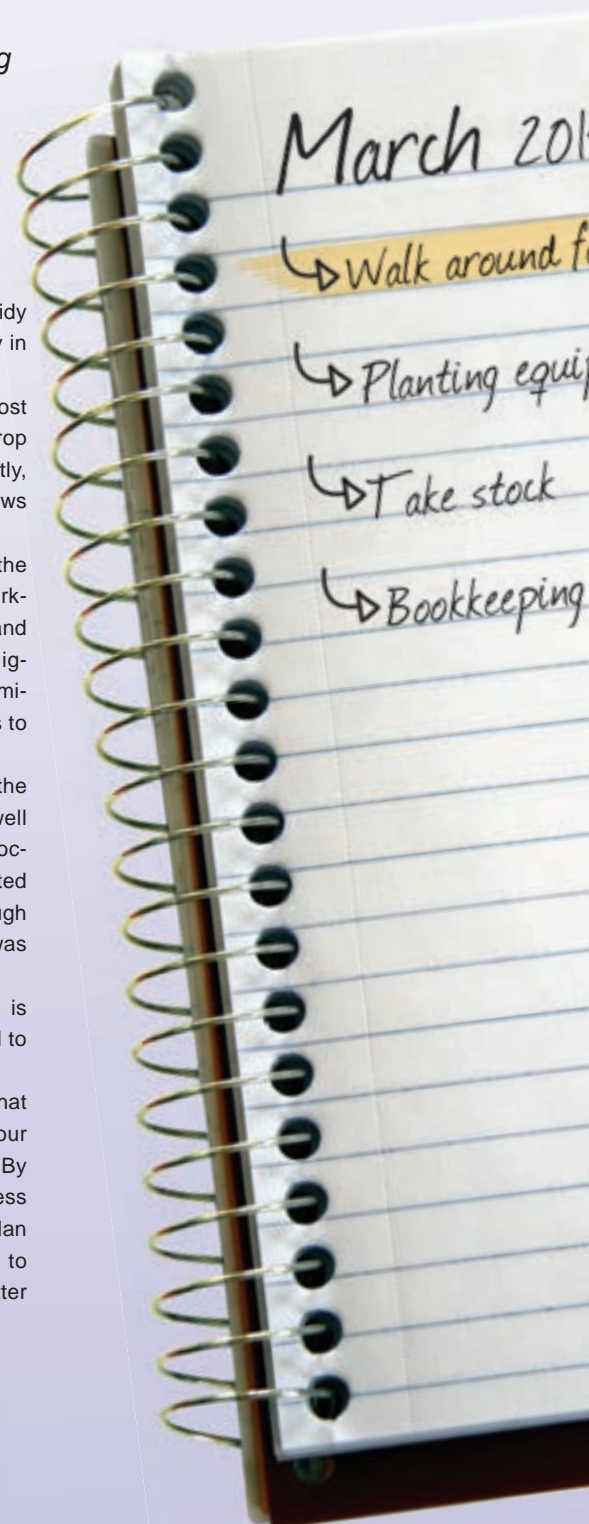 g
idy
in
ost
rop
tly,
ws
the
rk-
and
ig-
mi-
to
the
vell
oc-
ted
ugh
was
is
to
hat
our
By
ess
lan
to
ter
March 201
Walk around f
Planting equip
Take stock
Bookkeeping